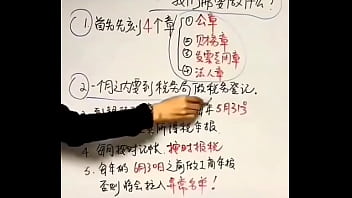 我们需要做什么?
①首先先刻4个章
①公章
②财务章
③发票专用章
④法人章
②一个月之内要到税务局做税务登记.
5月31号
所得税年报
4.每月按时记帐,按时报税
5.每年的6月30号之前做工商年报
否则将会拉入异常名单!